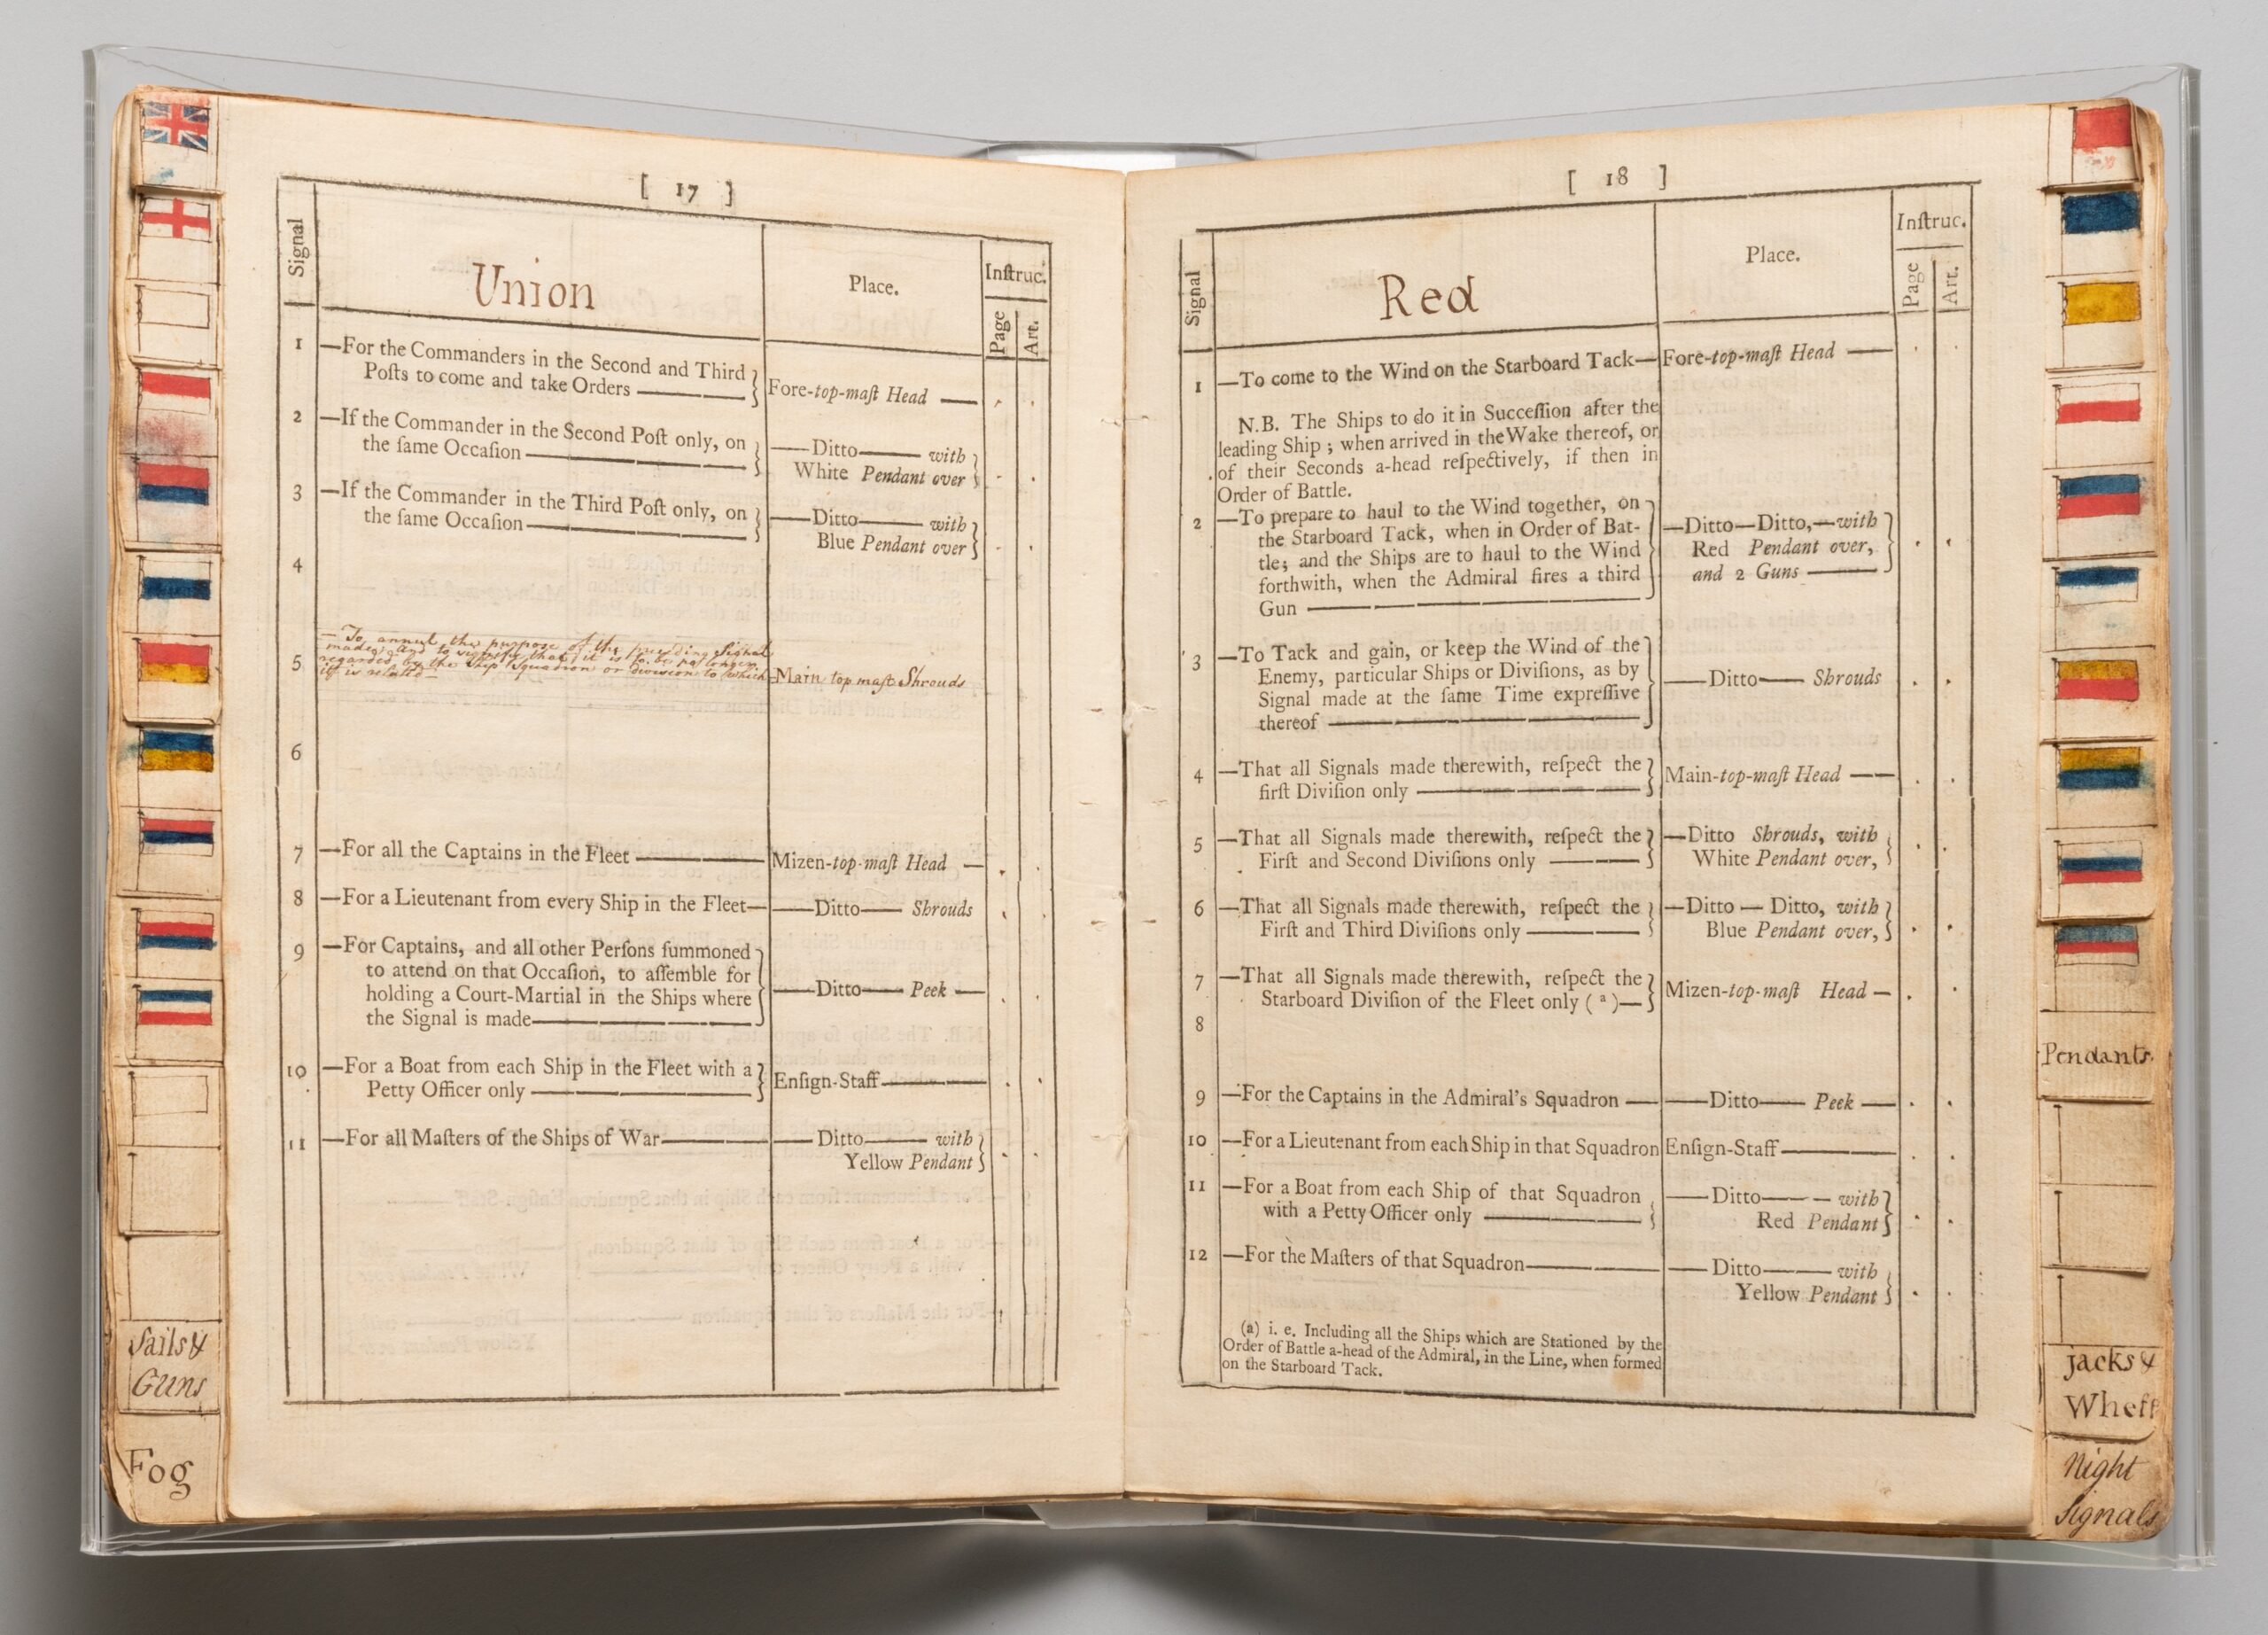 [ 17 ]
Signal
Union
Place.
Inſtruc.
Page
Art.
1 —For the Commanders in the Second and Third
Poſts to come and take Orders —— } Fore-top-maſt Head —
2 —If the Commander in the Second Poſt only, on
the ſame Occaſion —— } —Ditto— with
White Pendant over }
3 —If the Commander in the Third Poſt only, on
the ſame Occaſion —— } —Ditto— with
Blue Pendant over }
4
— To annul the purpose of the preceding Signal
made, and to signify that it is to be no longer
5 regarded by the Ship Squadron or division to which
it is related — Main top maſt Shrouds
6
7 —For all the Captains in the Fleet —— Mizen-top-maſt Head —
8 —For a Lieutenant from every Ship in the Fleet— —Ditto— Shrouds
9 —For Captains, and all other Perſons ſummoned
to attend on that Occaſion, to aſſemble for
holding a Court-Martial in the Ships where } —Ditto— Peek —
the Signal is made——
10 —For a Boat from each Ship in the Fleet with a
Petty Officer only —— } Enſign-Staff——
11 —For all Maſters of the Ships of War—— —Ditto— with
Yellow Pendant }
Sails &
Guns
Fog
[ 18 ]
Signal
Red
Place.
Inſtruc.
Page
Art.
1 —To come to the Wind on the Starboard Tack— Fore-top-maſt Head —
N.B. The Ships to do it in Succeſſion after the
leading Ship; when arrived in the Wake thereof, or
of their Seconds a-head reſpectively, if then in
Order of Battle.
2 —To prepare to haul to the Wind together, on
the Starboard Tack, when in Order of Bat- —Ditto—Ditto,—with
tle; and the Ships are to haul to the Wind } Red Pendant over,
forthwith, when the Admiral fires a third and 2 Guns — }
Gun ——
3 —To Tack and gain, or keep the Wind of the
Enemy, particular Ships or Diviſions, as by
Signal made at the ſame Time expreſſive } —Ditto— Shrouds
thereof ——
4 —That all Signals made therewith, reſpect the
firſt Diviſion only —— } Main-top-maſt Head ——
5 —That all Signals made therewith, reſpect the —Ditto Shrouds, with
Firſt and Second Diviſions only —— } White Pendant over, }
6 —That all Signals made therewith, reſpect the —Ditto — Ditto, with
Firſt and Third Diviſions only —— } Blue Pendant over, }
7 —That all Signals made therewith, reſpect the
Starboard Diviſion of the Fleet only (a)— } Mizen-top-maſt Head —
8
9 —For the Captains in the Admiral's Squadron — —Ditto— Peek —
10 —For a Lieutenant from each Ship in that Squadron Enſign-Staff——
11 —For a Boat from each Ship of that Squadron —Ditto— — with
with a Petty Officer only —— } Red Pendant }
12 —For the Maſters of that Squadron—— —Ditto— with
Yellow Pendant }
(a) i. e. Including all the Ships which are Stationed by the
Order of Battle a-head of the Admiral, in the Line, when formed
on the Starboard Tack.
Pendants
jacks &
Wheft
Night
Signals